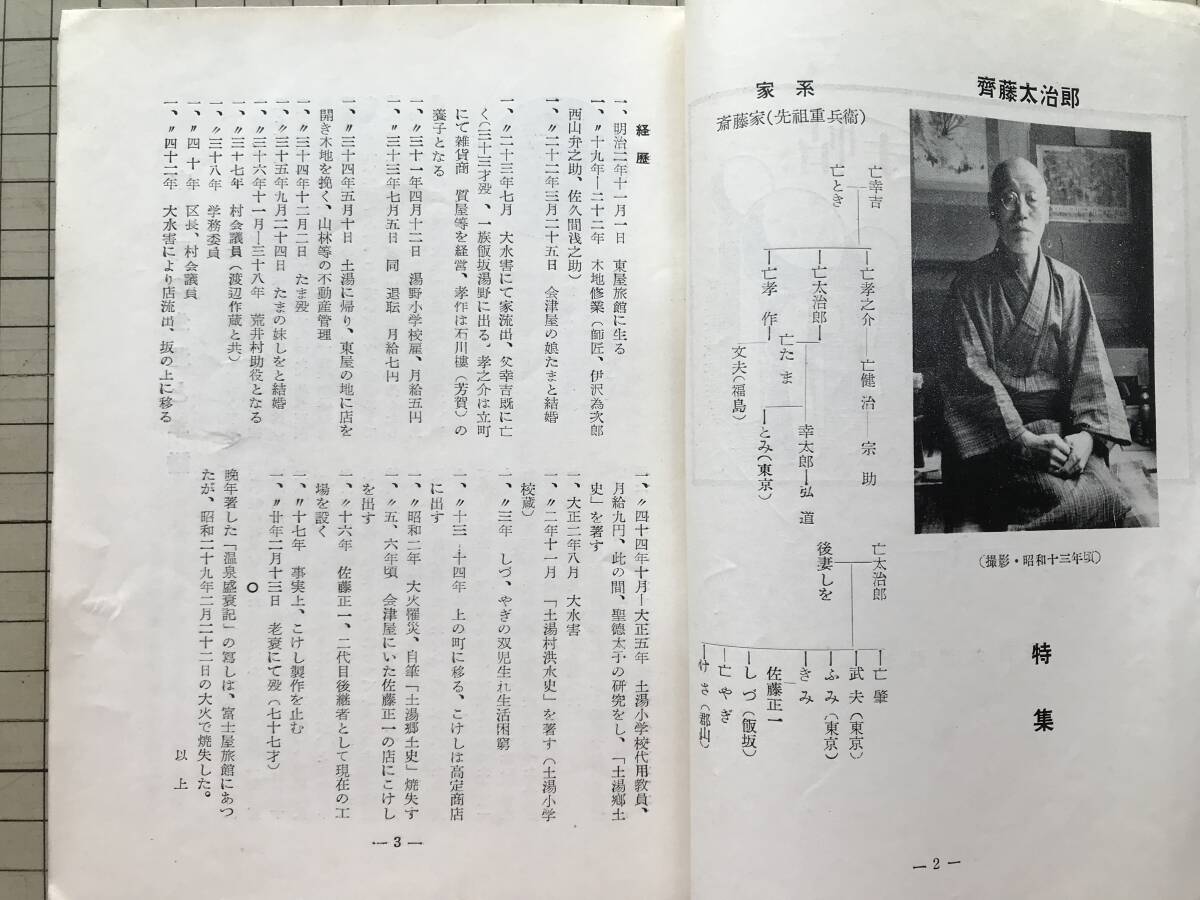 齊藤太治郎
(撮影・昭和十三年頃)
特集
家系
斎藤家(先祖重兵衛)
亡幸吉
亡とき
亡孝之介
亡健治
宗助
亡太治郎
亡たま
幸太郎
弘道
とみ(東京)
亡孝作
文夫(福島)
亡太治郎
後妻しを
亡肇
武夫(東京)
ふみ(東京)
きみ
佐藤正一
しづ(飯坂)
亡やぎ
さ(郡山)
—2—
経歴
一、明治二年十一月一日 東屋旅館に生る
一、〃十九年—二十二年 木地修業(師匠、伊沢為次郎
西山弁之助、佐久間浅之助)
一、〃二十二年三月二十五日 会津屋の娘たまと結婚
一、〃二十三年七月 大水害にて家流出、父幸吉既に亡
く(三十三才歿、一族飯坂湯野に出る。孝之介は立町
にて雑貨商 質屋等を経営、孝作は石川樓(芳賀)の
養子となる
一、〃三十一年四月十二日 湯野小学校雇、月給五円
一、〃三十三年七月五日 同 退転 月給七円
一、〃三十四年五月十日 土湯に帰り、東屋の地に店を
開き木地を挽く、山林等の不動産管理
一、〃三十四年十二月二日 たま歿
一、〃三十五年九月二十四日 たまの妹しをと結婚
一、〃三十六年十一月—三十八年 荒井村助役となる
一、〃三十七年 村会議員(渡辺作蔵と共)
一、〃三十八年 学務委員
一、〃四十年 区長、村会議員
一、〃四十二年 大水害により店流出、坂の上に移る
一、〃四十四年十月—大正五年 土湯小学校代用教員、
月給九円、此の間、聖徳太子の研究をし、「土湯郷土
史」を著す
一、大正二年八月 大水害
一、〃二年十一月 「土湯村洪水史」を著す(土湯小学
校蔵)
一、〃三年 しづ、やぎの双児生れ生活困窮
一、〃十三—十四年 上の町に移る、こけしは高定商店
に出す
一、昭和二年 大火罹災、自筆「土湯郷土史」焼失す
一、〃五、六年頃 会津屋にいた佐藤正一の店にこけし
を出す
一、〃十六年 佐藤正一、二代目後継者として現在の工
場を設く
一、〃十七年 事実上、こけし製作を止む
一、〃廿年二月十三日 老衰にて歿(七十七才)
○
晩年著した「温泉盛衰記」の寫しは、富士屋旅館にあつ
たが、昭和二十九年二月二十二日の大火で焼失した。
以上
—3—